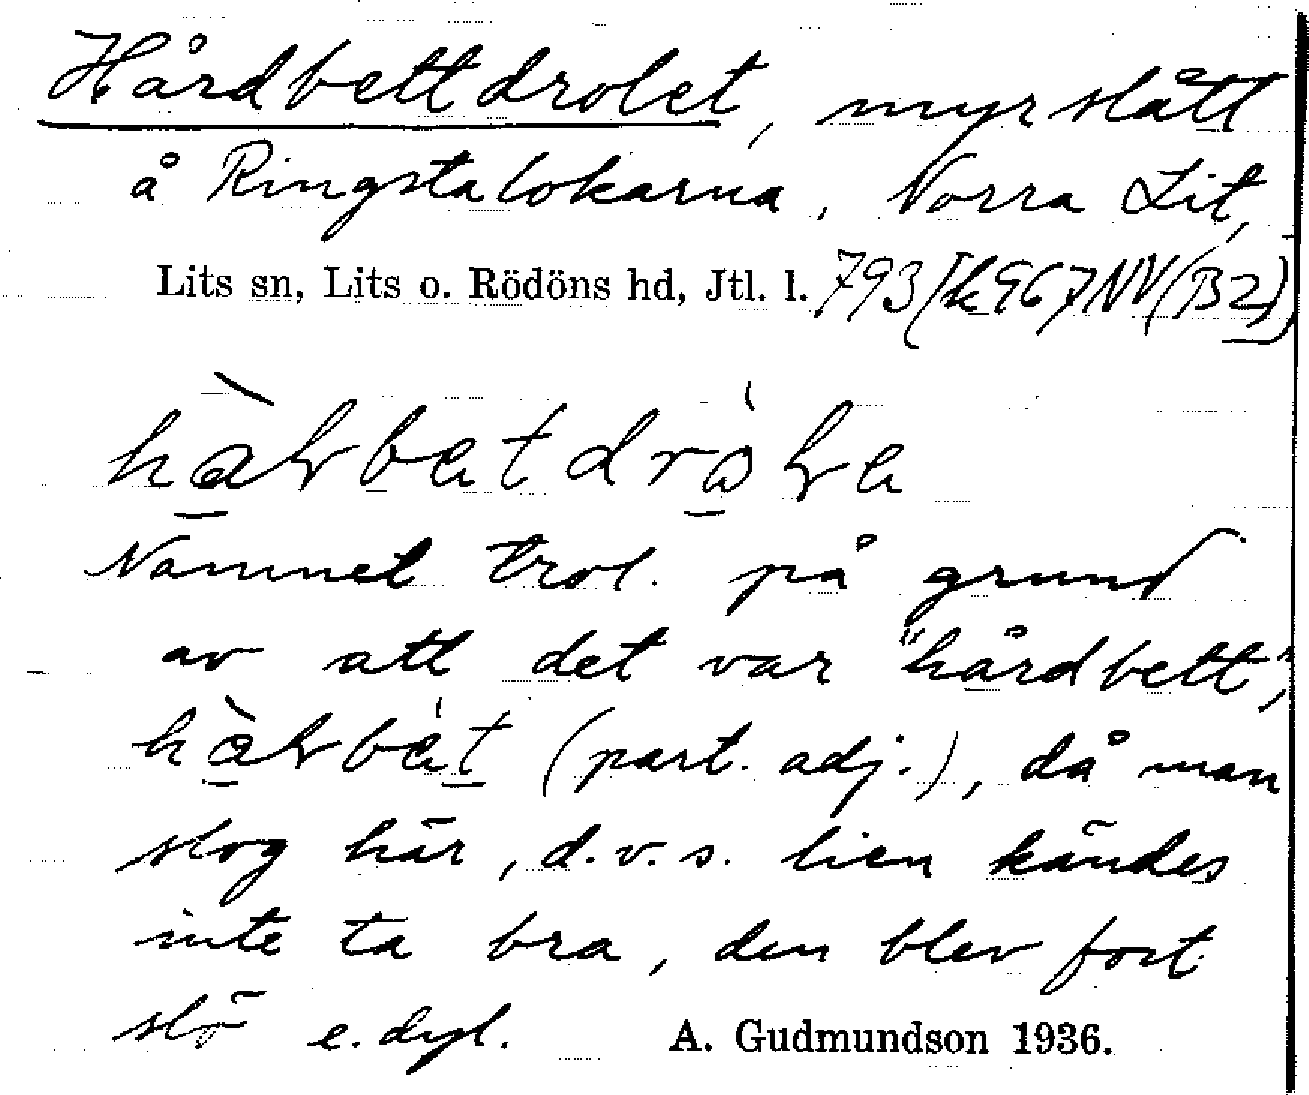 Hårdbettdrolet, myrslått
å Ringstalokarna, Norra Lit,
Lits sn, Lits o. Rödöns hd, Jtl. l.
Namnet trol. på grund
av att det var "hårdbett",
(part. adj.), då man
slog här, d.v.s. lien kändes
inte ta bra, den blev fort
slö e.dyl. A. Gudmundson 1936.